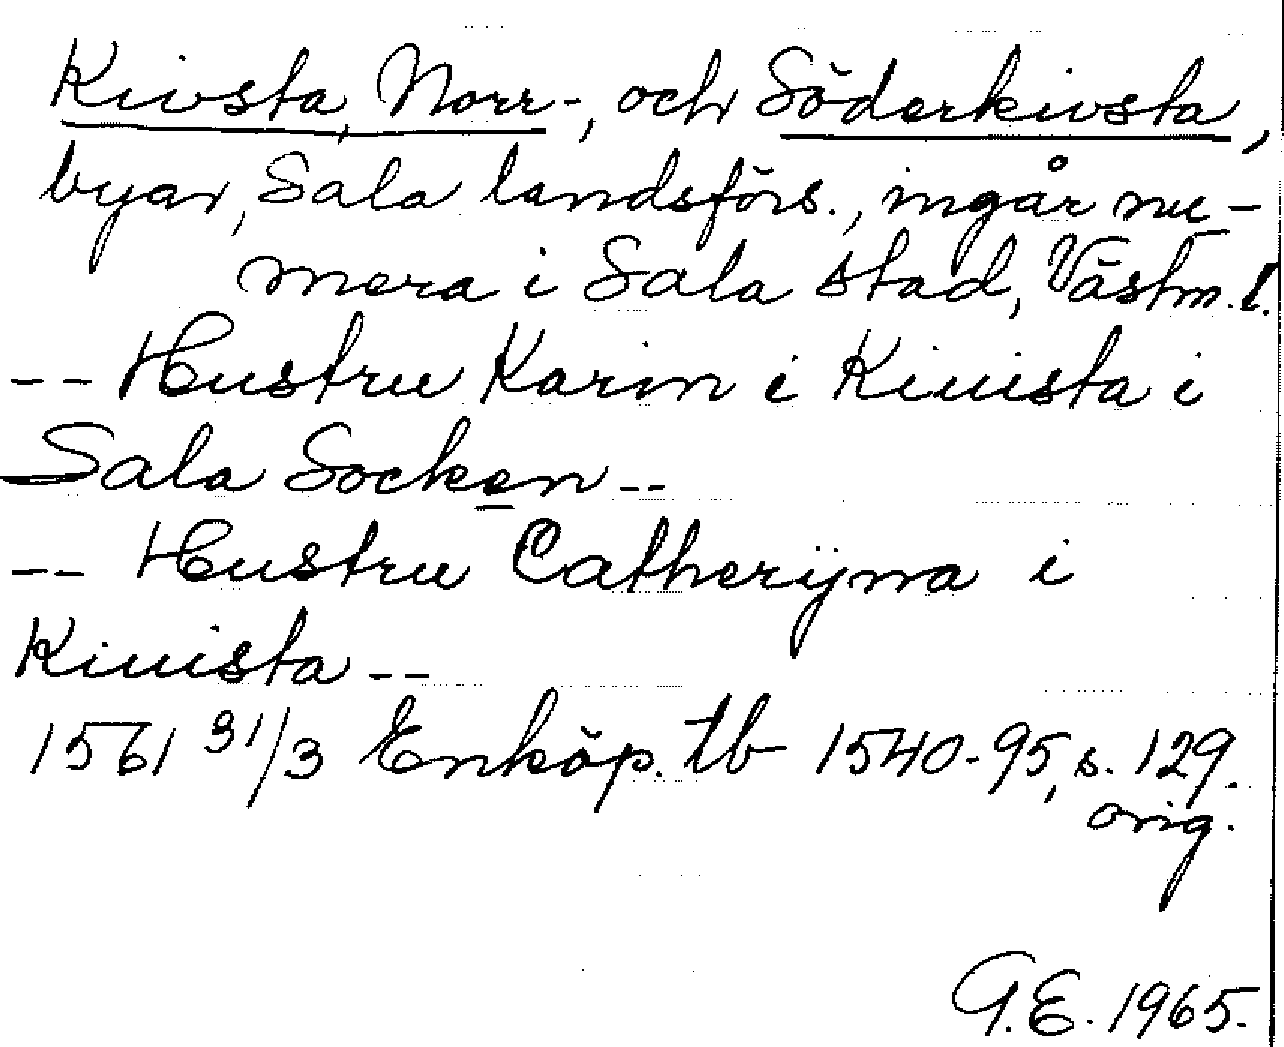 Kivsta, Norr-, och Söderkivsta,
byar, Sala landsförs., ingår nu-
mera i Sala stad, Västm. l.
-- Hustru Karin i Kiuista i
Sala Socken --
-- Hustru Catherÿna i
Kiuista --
1561 31/3 Enköp. tb 1540-95, s. 129.
orig.
G.E. 1965.